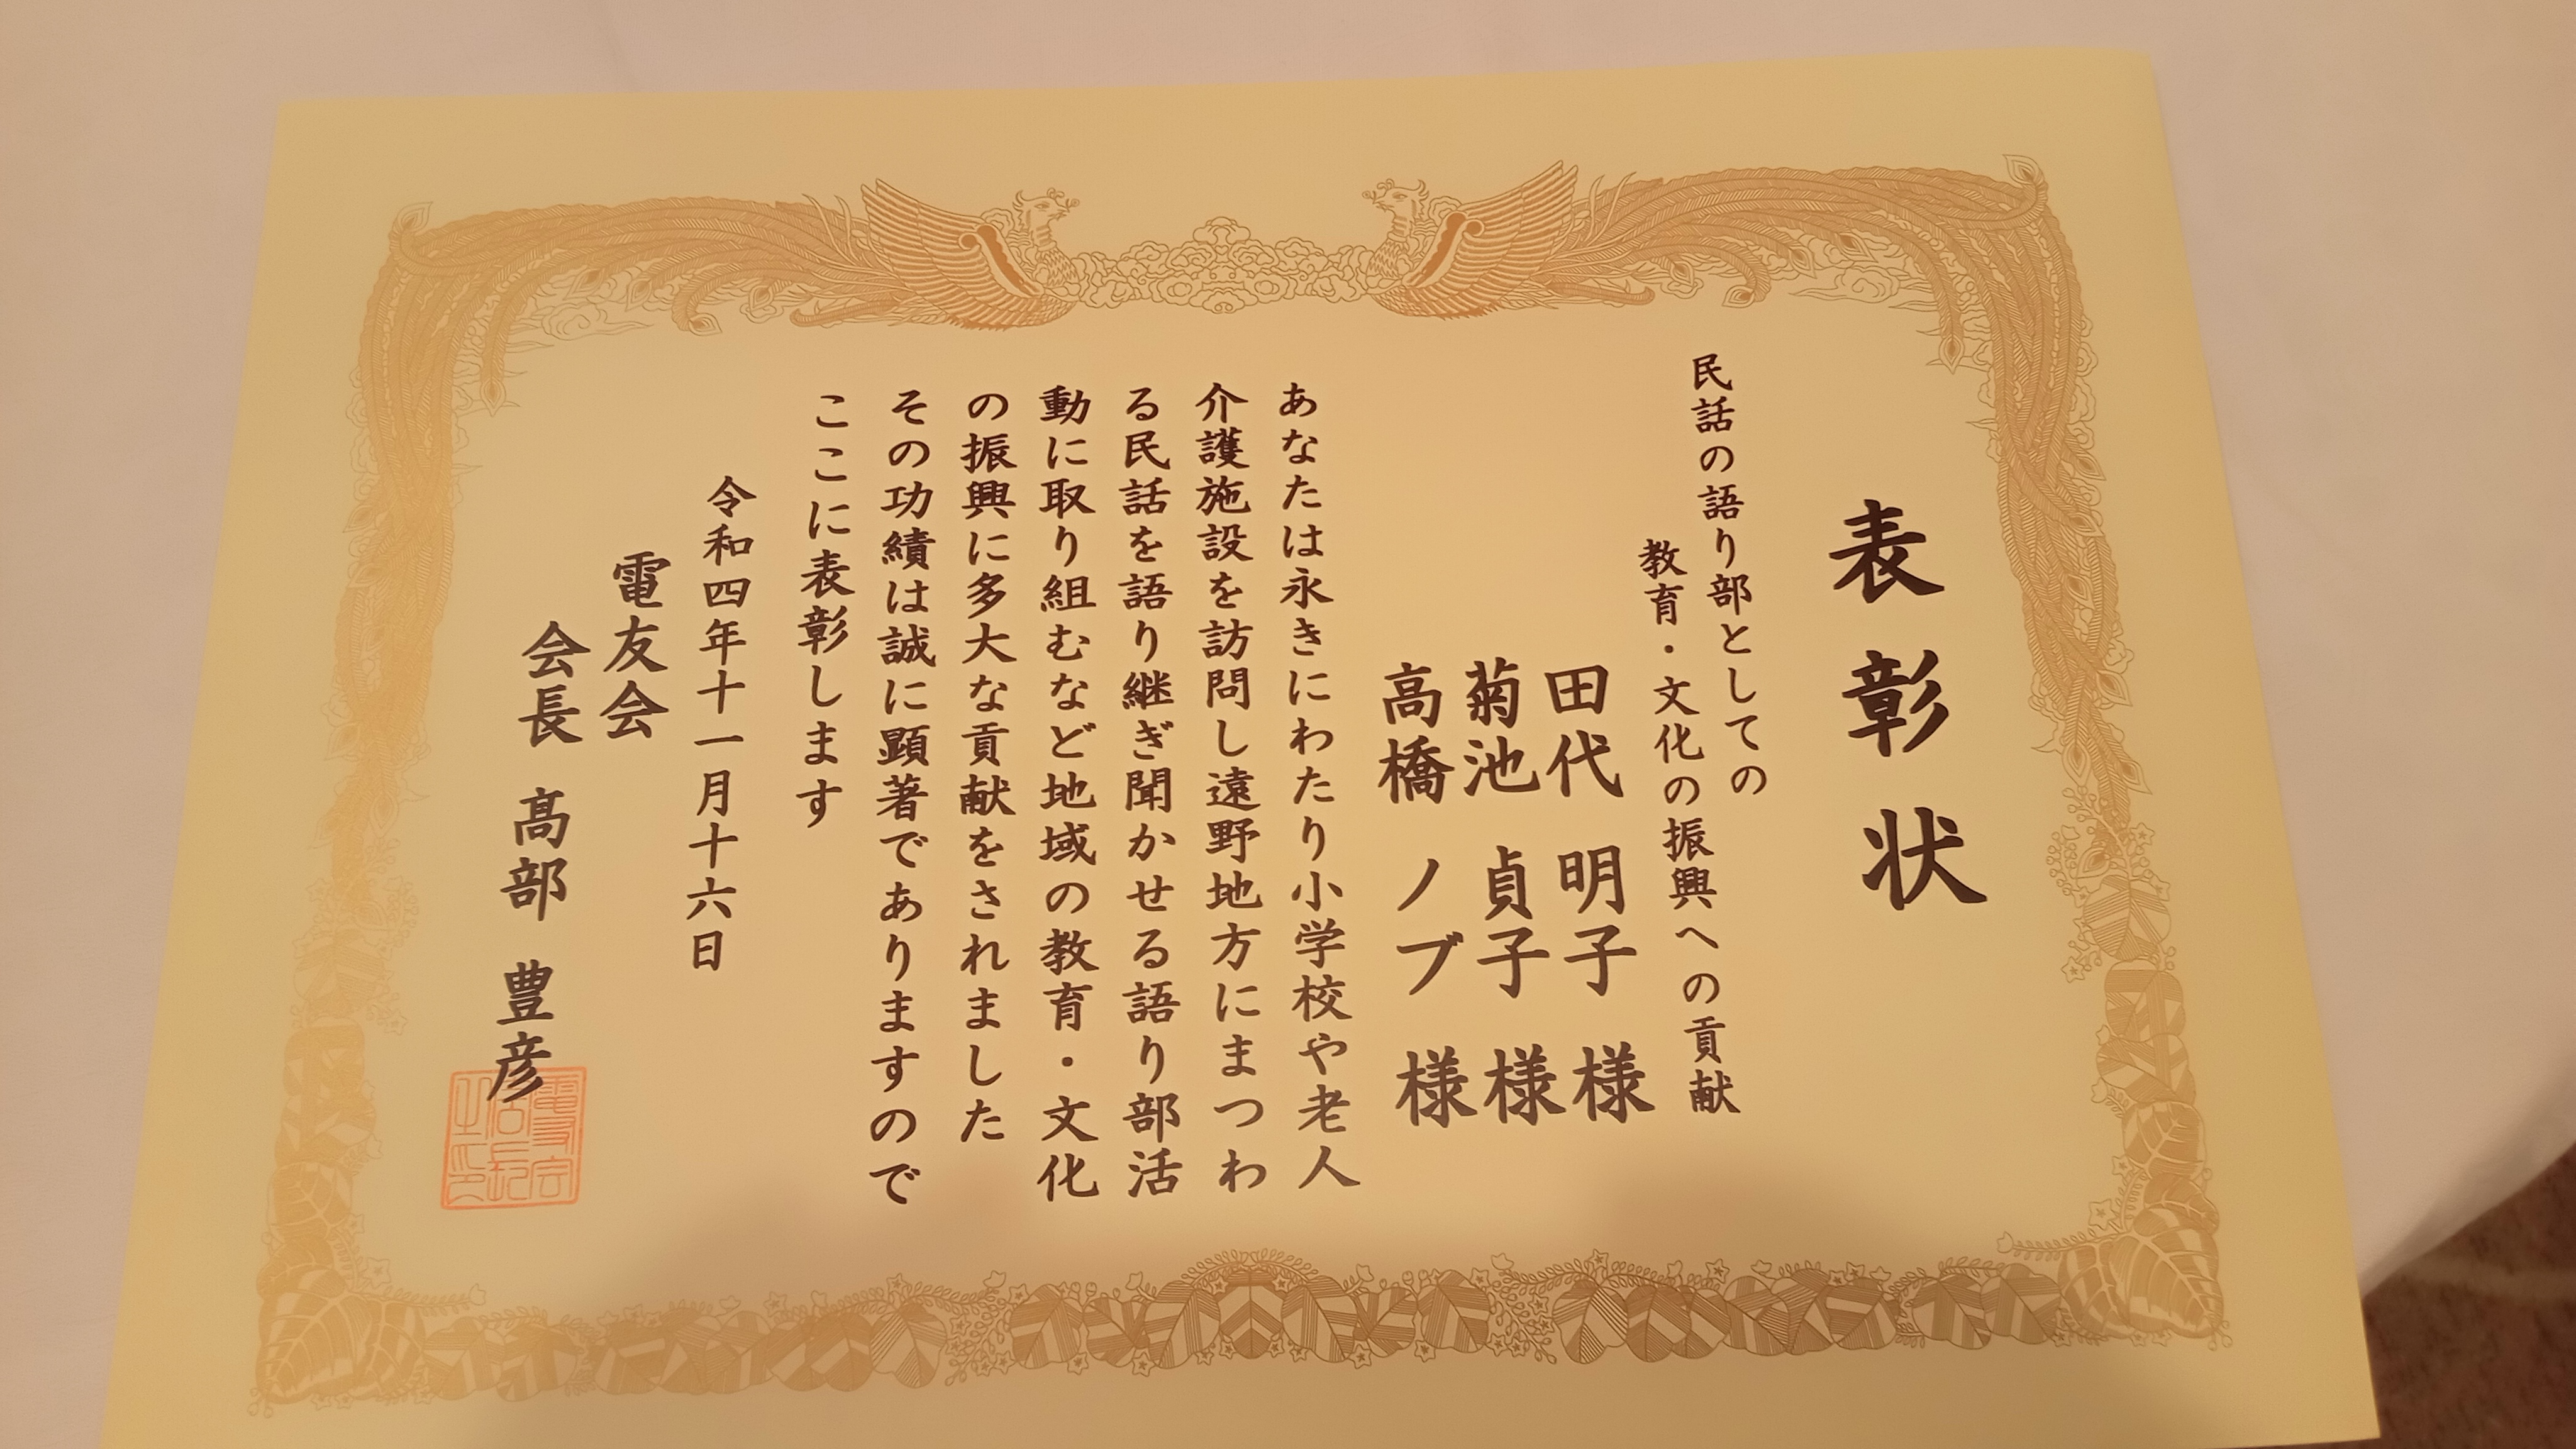 表彰状
民話の語り部としての
教育・文化の振興への貢献
田代 明子 様
菊池 貞子 様
高橋 ノブ 様
あなたは永きにわたり小学校や老人
介護施設を訪問し遠野地方にまつわ
る民話を語り継ぎ聞かせる語り部活
動に取り組むなど地域の教育・文化
の振興に多大な貢献をされました
その功績は誠に顕著でありますので
ここに表彰します
令和四年十一月十六日
電友会
会長 髙部 豊彦
電友会会長之印